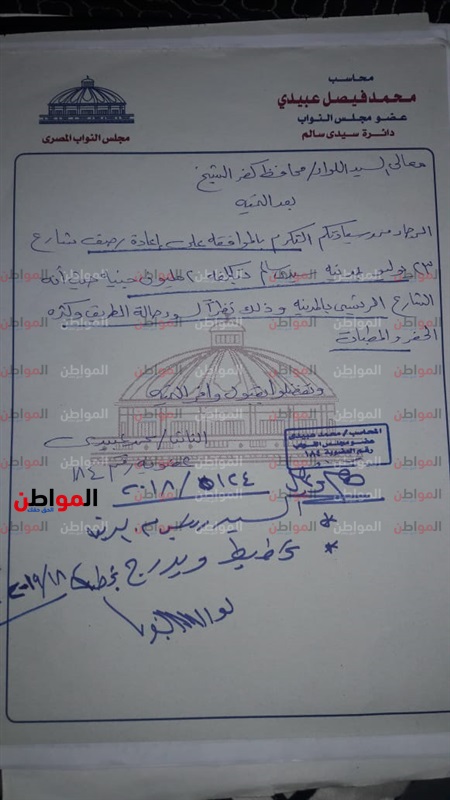 محاسب
محمد فيصل عبيدي
عضو مجلس النواب
دائرة سيدى سالم
مجلس النواب المصرى
معالى السيد اللواء/ محافظ كفر الشيخ
بعد التحيه
الرجاء من سيادتكم التكرم بالموافقه على إعادة رصف شارع
٢٣ يوليو بمدينه سيدى سالم بتكلفه ٢ مليون جنيه حيث أنه
الشارع الرئيسى بالمدينه وذلك نظراً لسوء حالة الطريق وكثره
الحفر والمطبات
وتفضلوا بقبول وافر التحيه
النائب/ محمد عبيدى
عضويه رقم ١٨٤
المحاسب/ محمد عبيدى
عضو مجلس النواب
رقم العضوية ١٨٤
٢٠١٨/٥/٢٤
السيد
* تخطيط ويدرج بخطة ٢٠١٩/١٨
المواطن